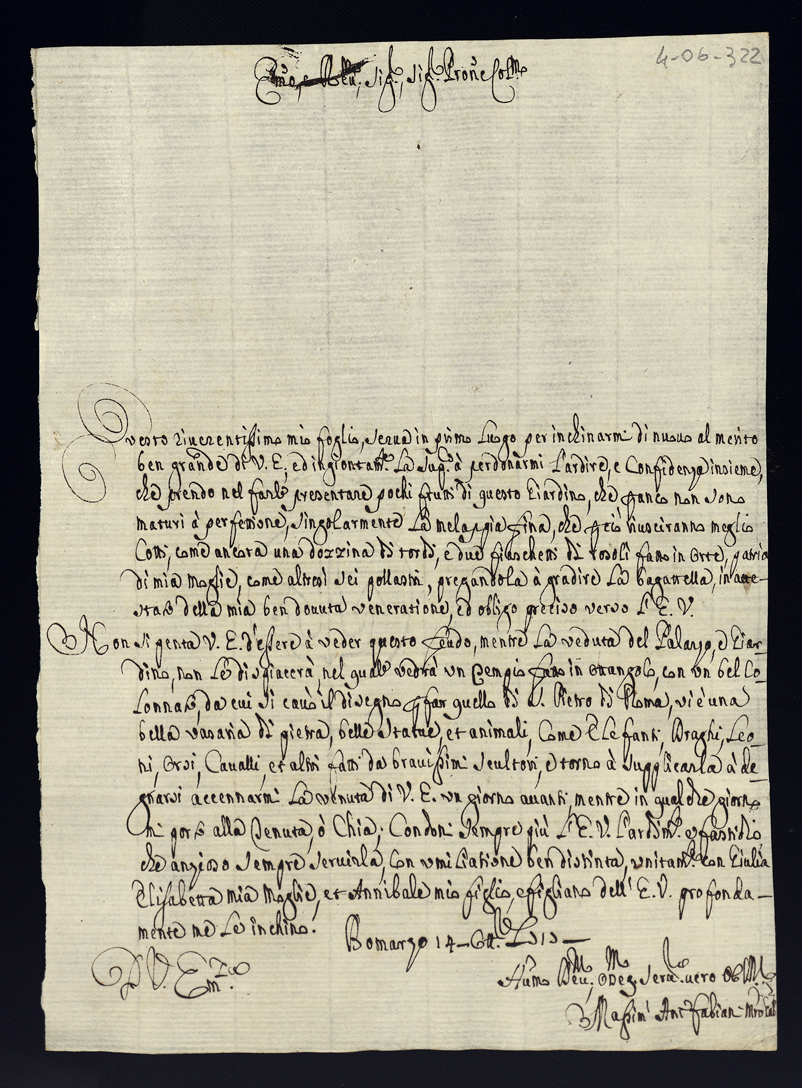 4-06-322
Em̃o, e Reu. Sig.r, Sig.r Prone Col.mo
Questo riuerentissimo mio foglio, serua in primo luogo per inchinarmi di nuouo al merito
ben grande di V. E., ed ingiontam.te La Sup.o à perdonarmi L'ardire, e Confidenza insieme,
che prendo nel farle presentare pochi frutti di questo Giardino, che p anco non sono
maturi à perfetione, singolarmente La melappia fina, che p ciò riusciranno meglio
Cotti, come ancora una dozzina di tordi, e due fiaschetti di rosoli fatto in Orte, patria
di mia Moglie, come altresi sei pollastri, pregandola à gradire La bagattella, in atte-
stato della mia ben douuta veneratione, ed obligo preciso verso L'E. V.
Non si penta V. E. d'essere à veder questo feudo, mentre La veduta del Palazzo, e Giar-
dino, non Le dispiacerà, nel quale vedrà vn Tempio fatto in ottangolo, con vn bel Co-
Lonnato, da cui si cauò il disegno p far quello di S. Pietro di Roma, vi è una
bella vasaria di pietra, belle statue, et animali, Come Elefanti, Draghi, Leo-
ni, Orsi, Caualli, et altri fatti da brauissimi scultori, e torno à supplicarla à de-
gnarsi accennarmi La venuta di V. E. vn giorno auanti, mentre in qualche giorno
mi porto alla Tenuta, ò Chia; Condoni sempre più L'E. V. L'ardim.to e fastidio,
che anzioso sempre seruirla, Con vmiliatione ben distinta, vnitam.te con Giulia
Elisabetta mia Moglie, et Annibale mio figlio, e figliano dell' E. V. profonda-
mente me Le inchino.
Bomarzo 14 Ott.
D. V. Em.za
Hum.o Deu.mo Seru. vero Ob.mo
Massim Ant. Fabian